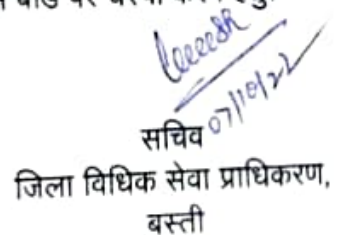 07/10/22
सचिव
जिला विधिक सेवा प्राधिकरण,
बस्ती